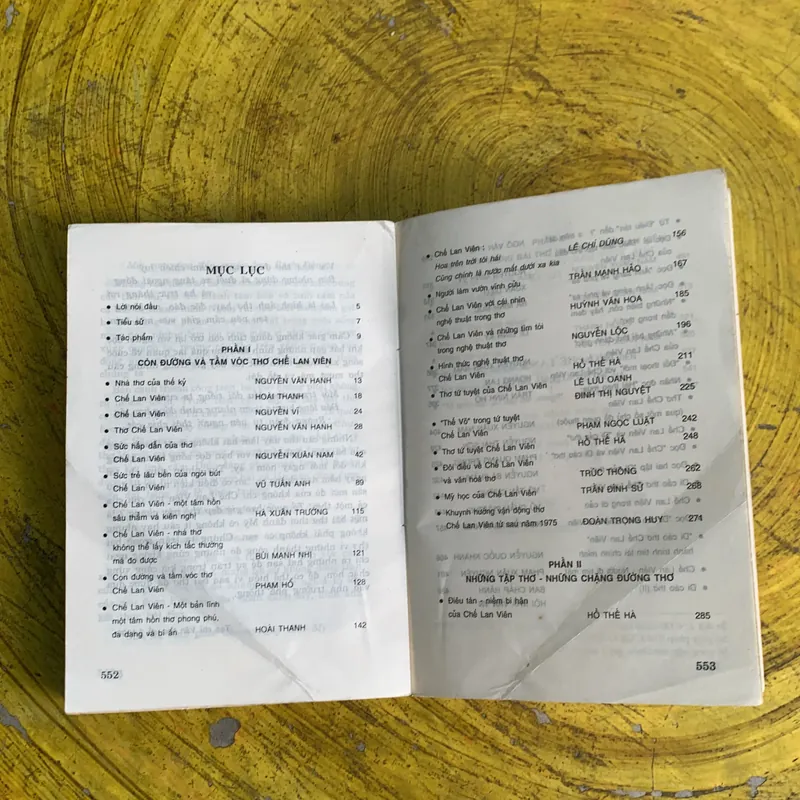 MỤC LỤC
• Lời nói đầu 5
• Tiểu sử 7
• Tác phẩm 9
PHẦN I
CON ĐƯỜNG VÀ TẦM VÓC THƠ CHẾ LAN VIÊN
• Nhà thơ của thế kỷ NGUYỄN VĂN HẠNH 13
• Chế Lan Viên HOÀI THANH 18
• Chế Lan Viên NGUYỄN VĨ 24
• Thơ Chế Lan Viên NGUYỄN VĂN HẠNH 28
• Sức hấp dẫn của thơ
Chế Lan Viên NGUYỄN XUÂN NAM 42
• Sức trẻ lâu bền của ngòi bút
Chế Lan Viên VŨ TUẤN ANH 89
• Chế Lan Viên - một tâm hồn
sâu thẳm và kiên nghị HÀ XUÂN TRƯỜNG 115
• Chế Lan Viên - nhà thơ
không thể lấy kích tấc thường
mà đo được BÙI MẠNH NHỊ 121
• Con đường và tầm vóc thơ
Chế Lan Viên PHẠM HỔ 128
• Chế Lan Viên - Một bản lĩnh
một tâm hồn thơ phong phú,
đa dạng và bí ẩn HOÀI THANH 142
552
• Chế Lan Viên :
Hoa trên trời tôi hái
Cũng chính là nước mắt dưới xa kia LÊ CHÍ DŨNG 156
• Người làm vườn vĩnh cửu TRẦN MẠNH HẢO 167
• Chế Lan Viên với cái nhìn
nghệ thuật trong thơ HUỲNH VĂN HOA 185
• Chế Lan Viên và những tìm tòi
trong nghệ thuật thơ NGUYỄN LỘC 196
• Hình thức nghệ thuật thơ
Chế Lan Viên HỒ THẾ HÀ 211
• Thơ tứ tuyệt của Chế Lan Viên LÊ LƯU OANH
ĐINH THỊ NGUYỆT 225
• "Thế Võ" trong tứ tuyệt
Chế Lan Viên PHẠM NGỌC LUẬT 242
• Thơ tứ tuyệt Chế Lan Viên HỒ THẾ HÀ 248
• Đôi điều về Chế Lan Viên
và văn hóa thơ TRÚC THÔNG 262
• Mỹ học của Chế Lan Viên TRẦN ĐÌNH SỬ 268
• Khuynh hướng vận động thơ
Chế Lan Viên từ sau năm 1975 ĐOÀN TRỌNG HUY 274
PHẦN II
NHỮNG TẬP THƠ - NHỮNG CHẶNG ĐƯỜNG THƠ
• Điêu tàn - niềm bi hận
của Chế Lan Viên HỒ THẾ HÀ 285
553